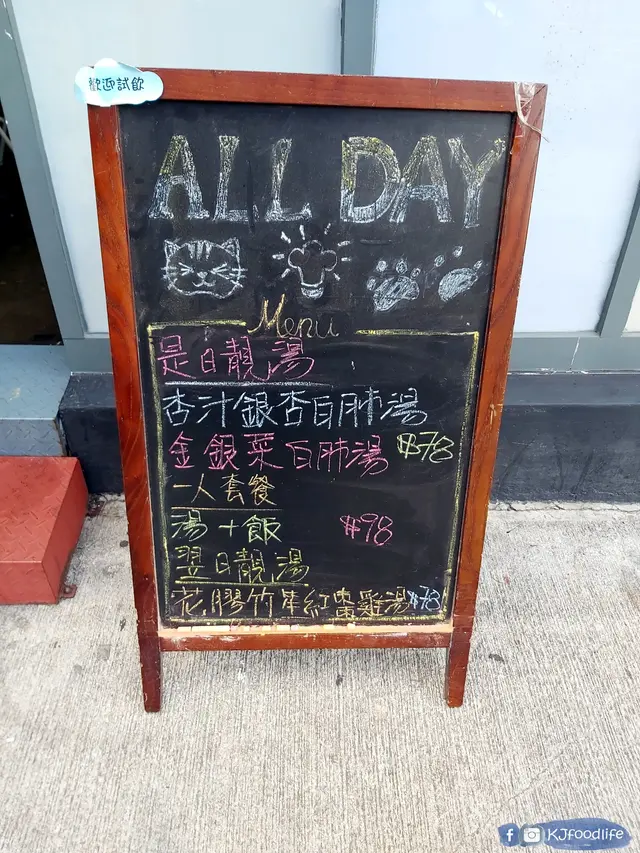 歡迎試飲
ALL DAY
Menu
是日靚湯
杏汁銀杏白肺湯
金銀菜白肺湯 $78
一人套餐
湯+飯 $98
翌日靚湯
花膠竹笙紅棗雞湯$78
KJfoodlife